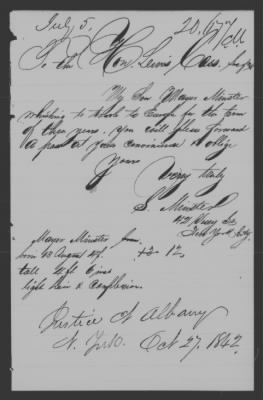 July 5. 20,677
To the Hon Lewis Cass.
My Son Mayer Minster
whishing to travle to Europ for the term
of three years. you will please forward
a pass at your convinience & oblige
Yours
Very truly
S. Minster
New York City.
Mayer Minster
born 13 August
tall 5 ft 6 ins
light Hair & Complexion.
Justice of Albany
N. York. Oct 27. 1842.